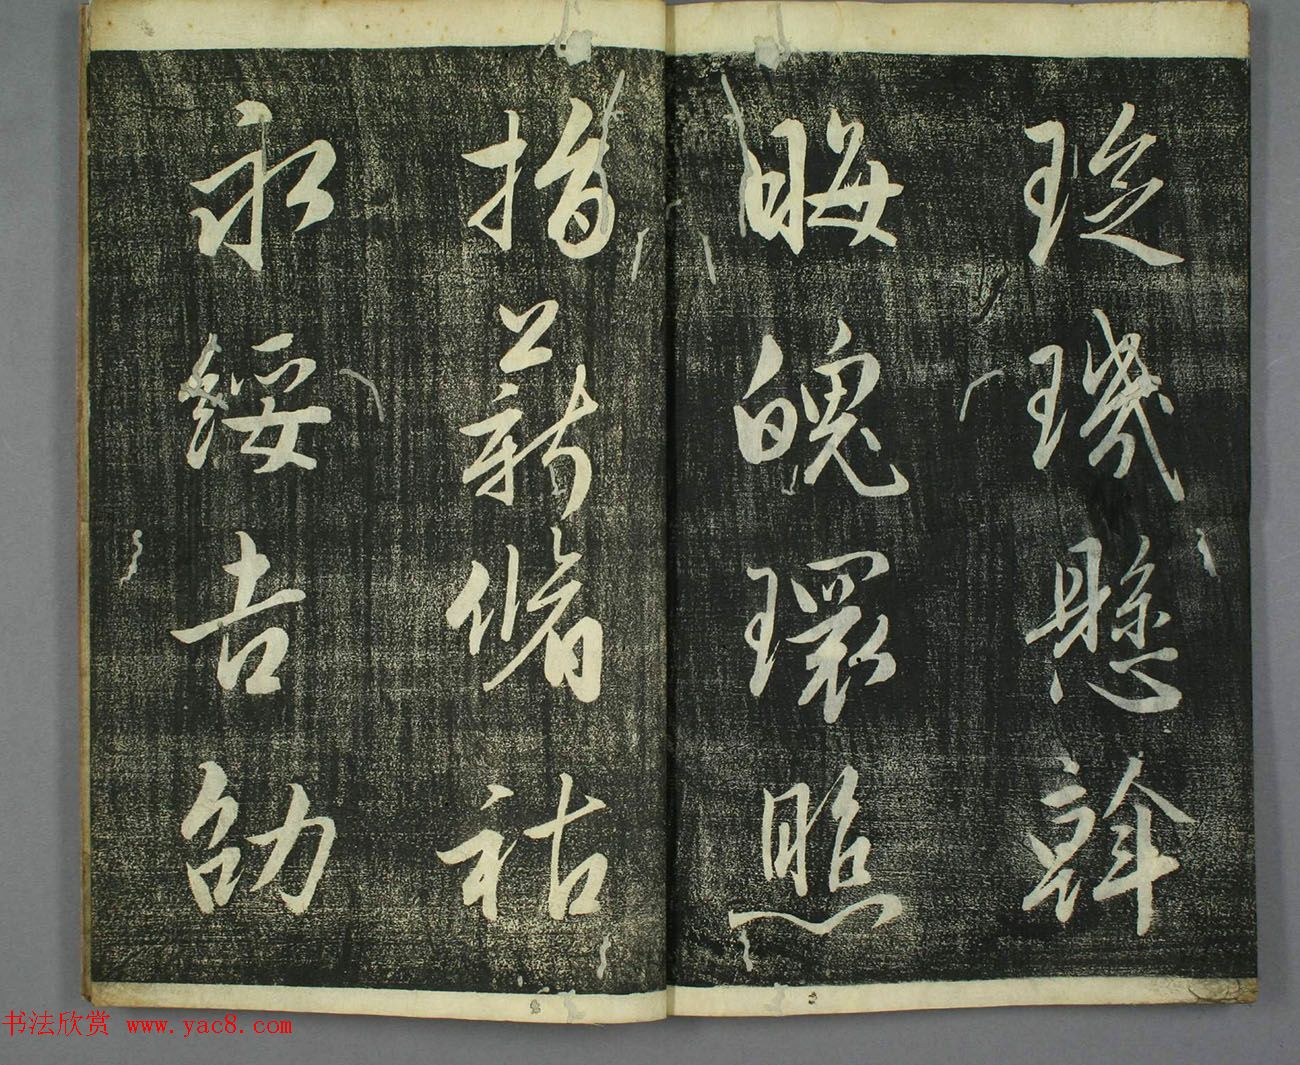 琁璣懸斡
晦魄環照
指薪脩祜
永綏吉劭
书法欣赏 www.yac8.com